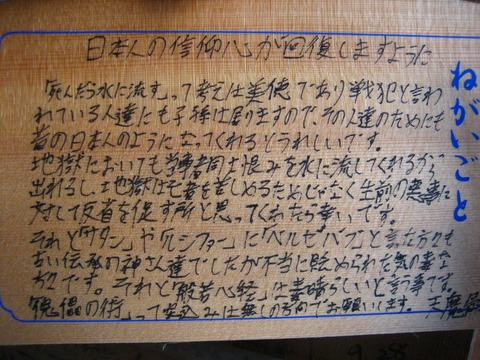 ねがいごと
日本人の信仰心が回復しますように
「死んだら水に流す」って考えは美徳であり戦犯と言わ
れている人達にも子孫は居りますので、その人達のためにも
昔の日本人のようになってくれるとうれしいです。
地獄においても当事者同士恨みを水に流してくれるから
出れるし、地獄は亡者を苦しめるためじゃなく生前の悪事に
対して反省を促す所と思ってくれたら幸いです。
それと「サタン」や「ルシファー」に「ベルゼバブ」と言う方々も
古い伝承の神さん達でしたが不当に貶められた気の毒な
方々です。それと「般若心経」は素晴らしいと言う事です。
「傀儡の術」って突込みは無しの方向でお願いします。